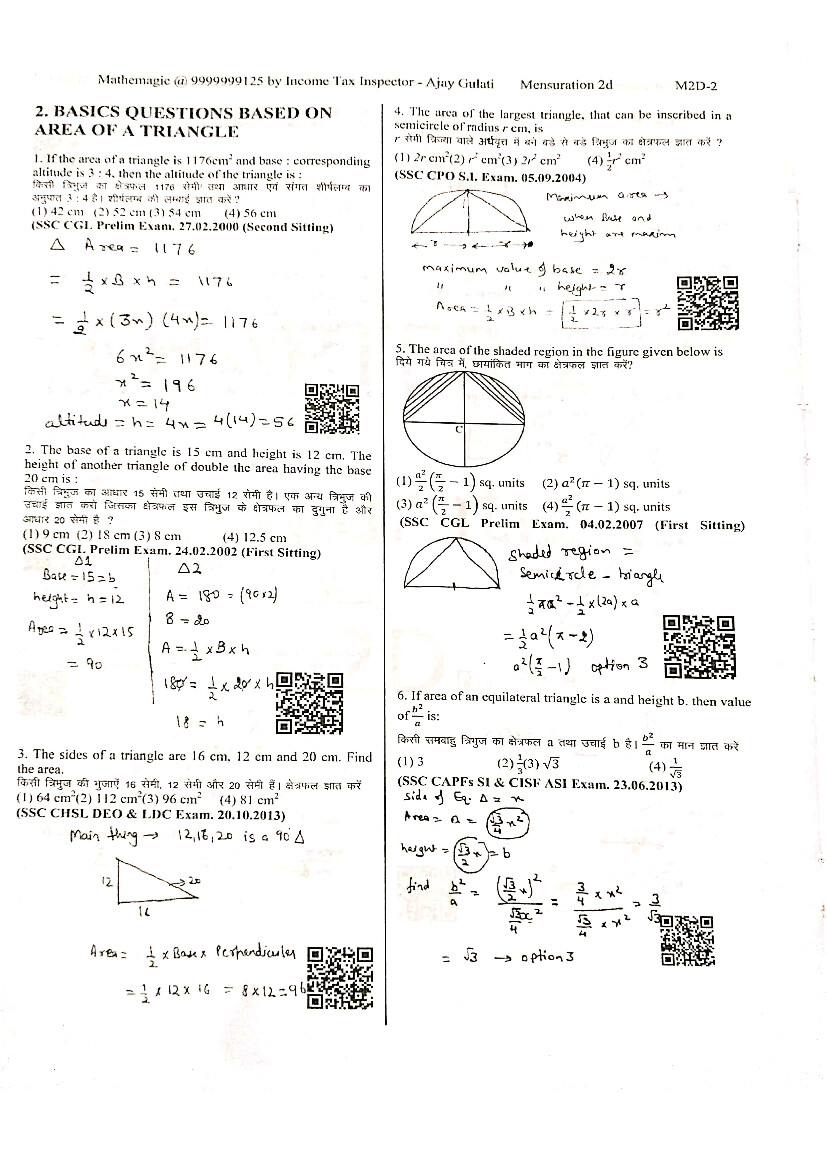 Mathemagic @ 9999999125 by Income Tax Inspector - Ajay Gulati Mensuration 2d M2D-2
2. BASICS QUESTIONS BASED ON
AREA OF A TRIANGLE
1. If the area of a triangle is 1176cm² and base : corresponding
altitude is 3 : 4, then the altitude of the triangle is :
किसी त्रिभुज का क्षेत्रफल 1176 सेमी² तथा आधार एवं संगत शीर्षलम्ब का
अनुपात 3 : 4 है। शीर्षलम्ब की लम्बाई ज्ञात करें ?
(1) 42 cm (2) 52 cm (3) 54 cm (4) 56 cm
(SSC CGL Prelim Exam. 27.02.2000 (Second Sitting)
Δ Area = 1176
= 1/2 x B x h = 1176
= 1/2 x (3x) (4x) = 1176
6x² = 1176
x² = 196
x = 14
altitude = h = 4x = 4(14) = 56
2. The base of a triangle is 15 cm and height is 12 cm. The
height of another triangle of double the area having the base
20 cm is :
किसी त्रिभुज का आधार 15 सेमी तथा उचाई 12 सेमी है। एक अन्य त्रिभुज की
उचाई ज्ञात करो जिसका क्षेत्रफल इस त्रिभुज के क्षेत्रफल का दुगुना है और
आधार 20 सेमी है ?
(1) 9 cm (2) 18 cm (3) 8 cm (4) 12.5 cm
(SSC CGL Prelim Exam. 24.02.2002 (First Sitting)
Δ1
Base = 15 = b
height = h = 12
Area = 1/2 x 12 x 15
= 90
Δ2
A = 180 = (90x2)
B = 20
A = 1/2 x B x h
180 = 1/2 x 20 x h
18 = h
3. The sides of a triangle are 16 cm, 12 cm and 20 cm. Find
the area.
किसी त्रिभुज की भुजाएँ 16 सेमी, 12 सेमी और 20 सेमी हैं। क्षेत्रफल ज्ञात करें
(1) 64 cm² (2) 112 cm² (3) 96 cm² (4) 81 cm²
(SSC CHSL DEO & LDC Exam. 20.10.2013)
Main thing → 12,16,20 is a 90° Δ
12 20
16
Area = 1/2 x Base x Perpendicular
= 1/2 x 12 x 16 = 8 x 12 = 96
4. The area of the largest triangle, that can be inscribed in a
semicircle of radius r cm, is
r सेमी त्रिज्या वाले अर्धवृत्त में बने बड़े से बड़े त्रिभुज का क्षेत्रफल ज्ञात करें ?
(1) 2r cm² (2) r² cm² (3) 2r² cm² (4) 1/2 r² cm²
(SSC CPO S.I. Exam. 05.09.2004)
Maximum area →
when Base and
height are maxim
maximum value of base = 2r
" " " height = r
Area = 1/2 x B x h = 1/2 x 2r x r = r²
5. The area of the shaded region in the figure given below is
दिये गये चित्र में, छायांकित भाग का क्षेत्रफल ज्ञात करें?
C
(1) a²/2 (π/2 − 1) sq. units (2) a²(π − 1) sq. units
(3) a² (π/2 − 1) sq. units (4) a²/2 (π − 1) sq. units
(SSC CGL Prelim Exam. 04.02.2007 (First Sitting)
Shaded region =
Semicircle - triangle
1/2 πa² - 1/2 x (2a) x a
= 1/2 a² (π - 2)
a² (π/2 - 1) option 3
6. If area of an equilateral triangle is a and height b. then value
of b²/a is:
किसी समबाहु त्रिभुज का क्षेत्रफल a तथा उचाई b है। b²/a का मान ज्ञात करें
(1) 3 (2) 1/3 (3) √3 (4) 1/√3
(SSC CAPFs SI & CISF ASI Exam. 23.06.2013)
Side of Eq. Δ = x
Area = a = √3/4 x²
height = √3/2 x = b
find b²/a = (√3/2 x)² / √3x²/4 = 3/4 x x² / √3/4 x x² = 3/√3
= √3 → option 3